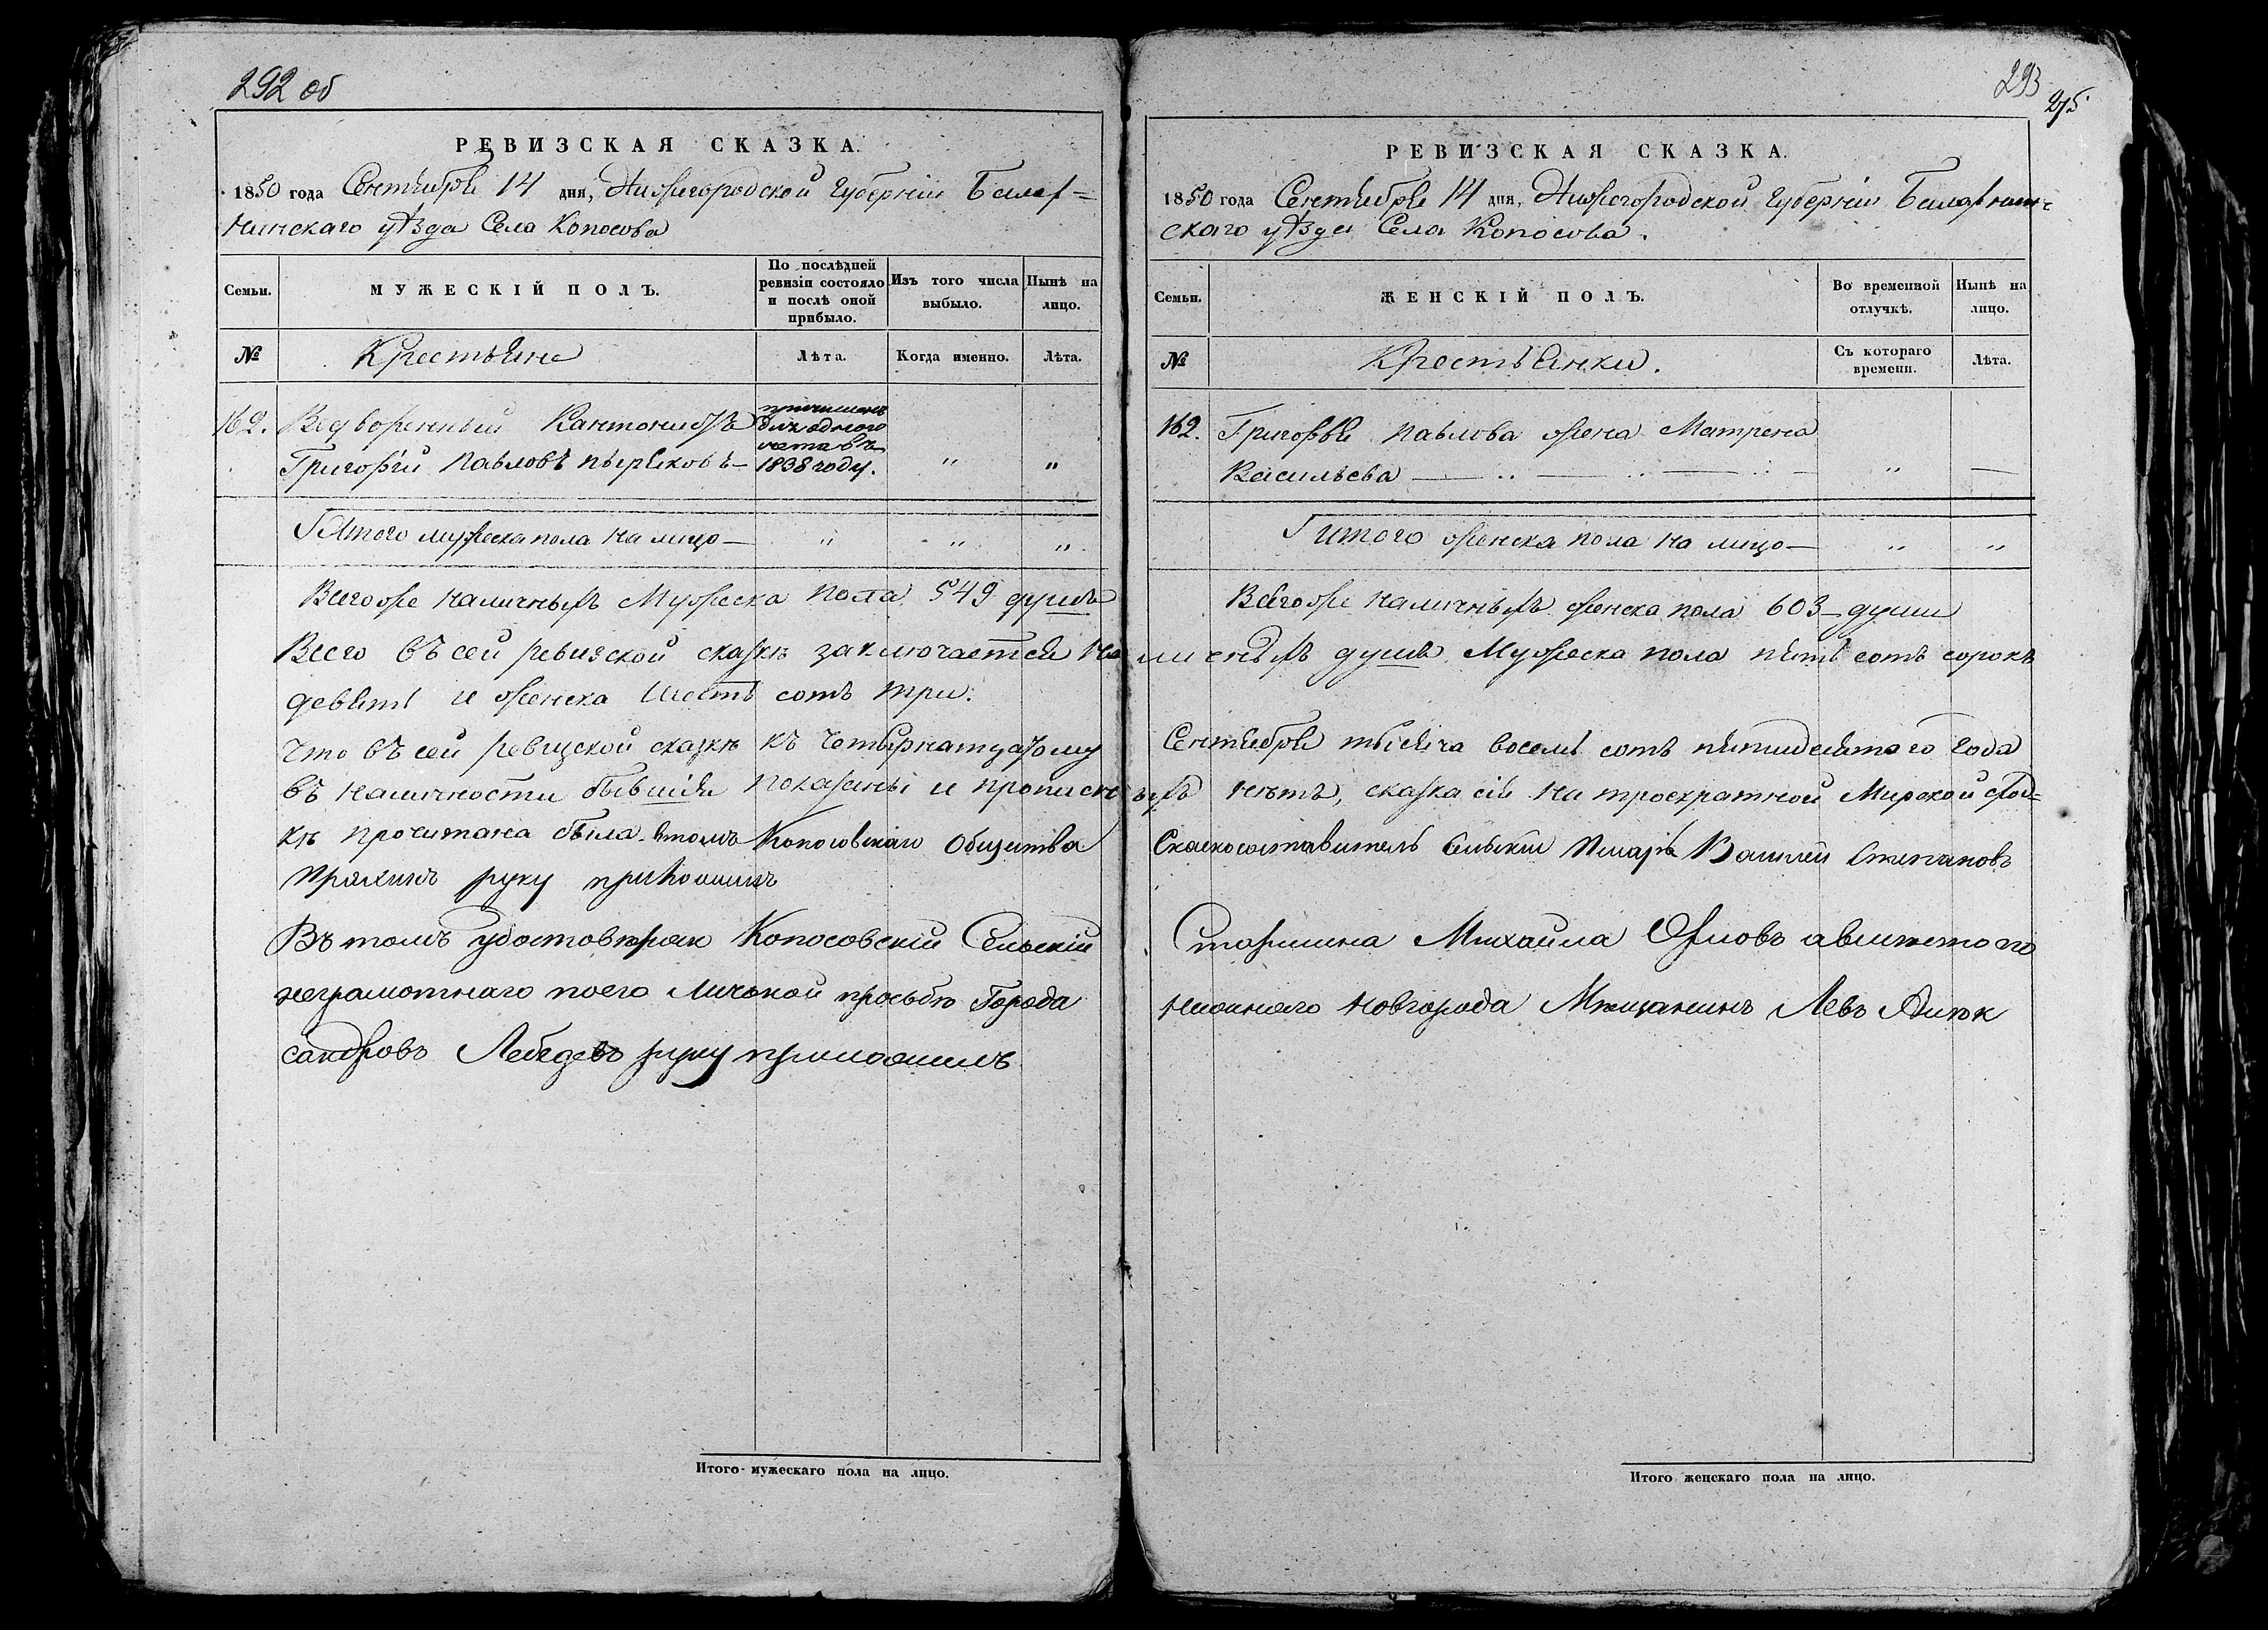 292 об
РЕВИЗСКАЯ СКАЗКА.
1850 года Сентября 14 дня, Нижегородской Губерніи Балах=
нинскаго уѣзда Села Копосова
Семьи.
МУЖЕСКІЙ ПОЛЪ.
По послѣдней ревизіи состояло и послѣ оной прибыло.
Изъ того числа выбыло.
Нынѣ на лицо.
№
Крестьяне
Лѣта.
Когда именно.
Лѣта.
162. Водворенный Кантонистъ
Григорій Павловъ —
причисленъ
для одного
счета въ
1838 году.
" "
Итого мужеска пола на лицо — " " "
Всегоже наличныхъ Мужеска пола 549 душъ
Всего въ сей ревизской сказкѣ заключается на
девять и женска шесть сотъ три.
Что въ сей ревизской сказкѣ къ четырнатцатому
въ наличности бывшія показаны и прописн
кѣ прочитана была. Втомъ Копосовскаго Общества
руку приложилъ
Въ томъ удостовѣряю Копосовскій Сельскій
неграмотнаго поего личной прозьбѣ Города
сандровъ Лебедевъ руку приложилъ
Итого мужескаго пола на лицо.
293
275
РЕВИЗСКАЯ СКАЗКА.
1850 года Сентября 14 дня, Нижегородской Губерніи Балахнин=
скаго уѣзда Села Копосова.
Семьи.
ЖЕНСКІЙ ПОЛЪ.
Во временной отлучкѣ.
Нынѣ на лицо.
№
Крестьянки.
Съ котораго времени.
Лѣта.
162. Григорья Павлова жена Матрена
Васильева — " —
Итого женска пола на лицо — " "
Всегоже наличныхъ женска пола 603 души
личныхъ душъ Мужеска пола пять сотъ сорокъ
Сентября тысяча восемь сотъ пятидесятаго года
ыхъ нѣтъ, сказка сія на троекратной Мирской сход=
Сказкосоставитель Сельскій Писарь Василей Степановъ
Старшина Михайла Орловъ авместо по
нижняго Новгорода Мѣщанинъ Левъ Алек
Итого женскаго пола на лицо.